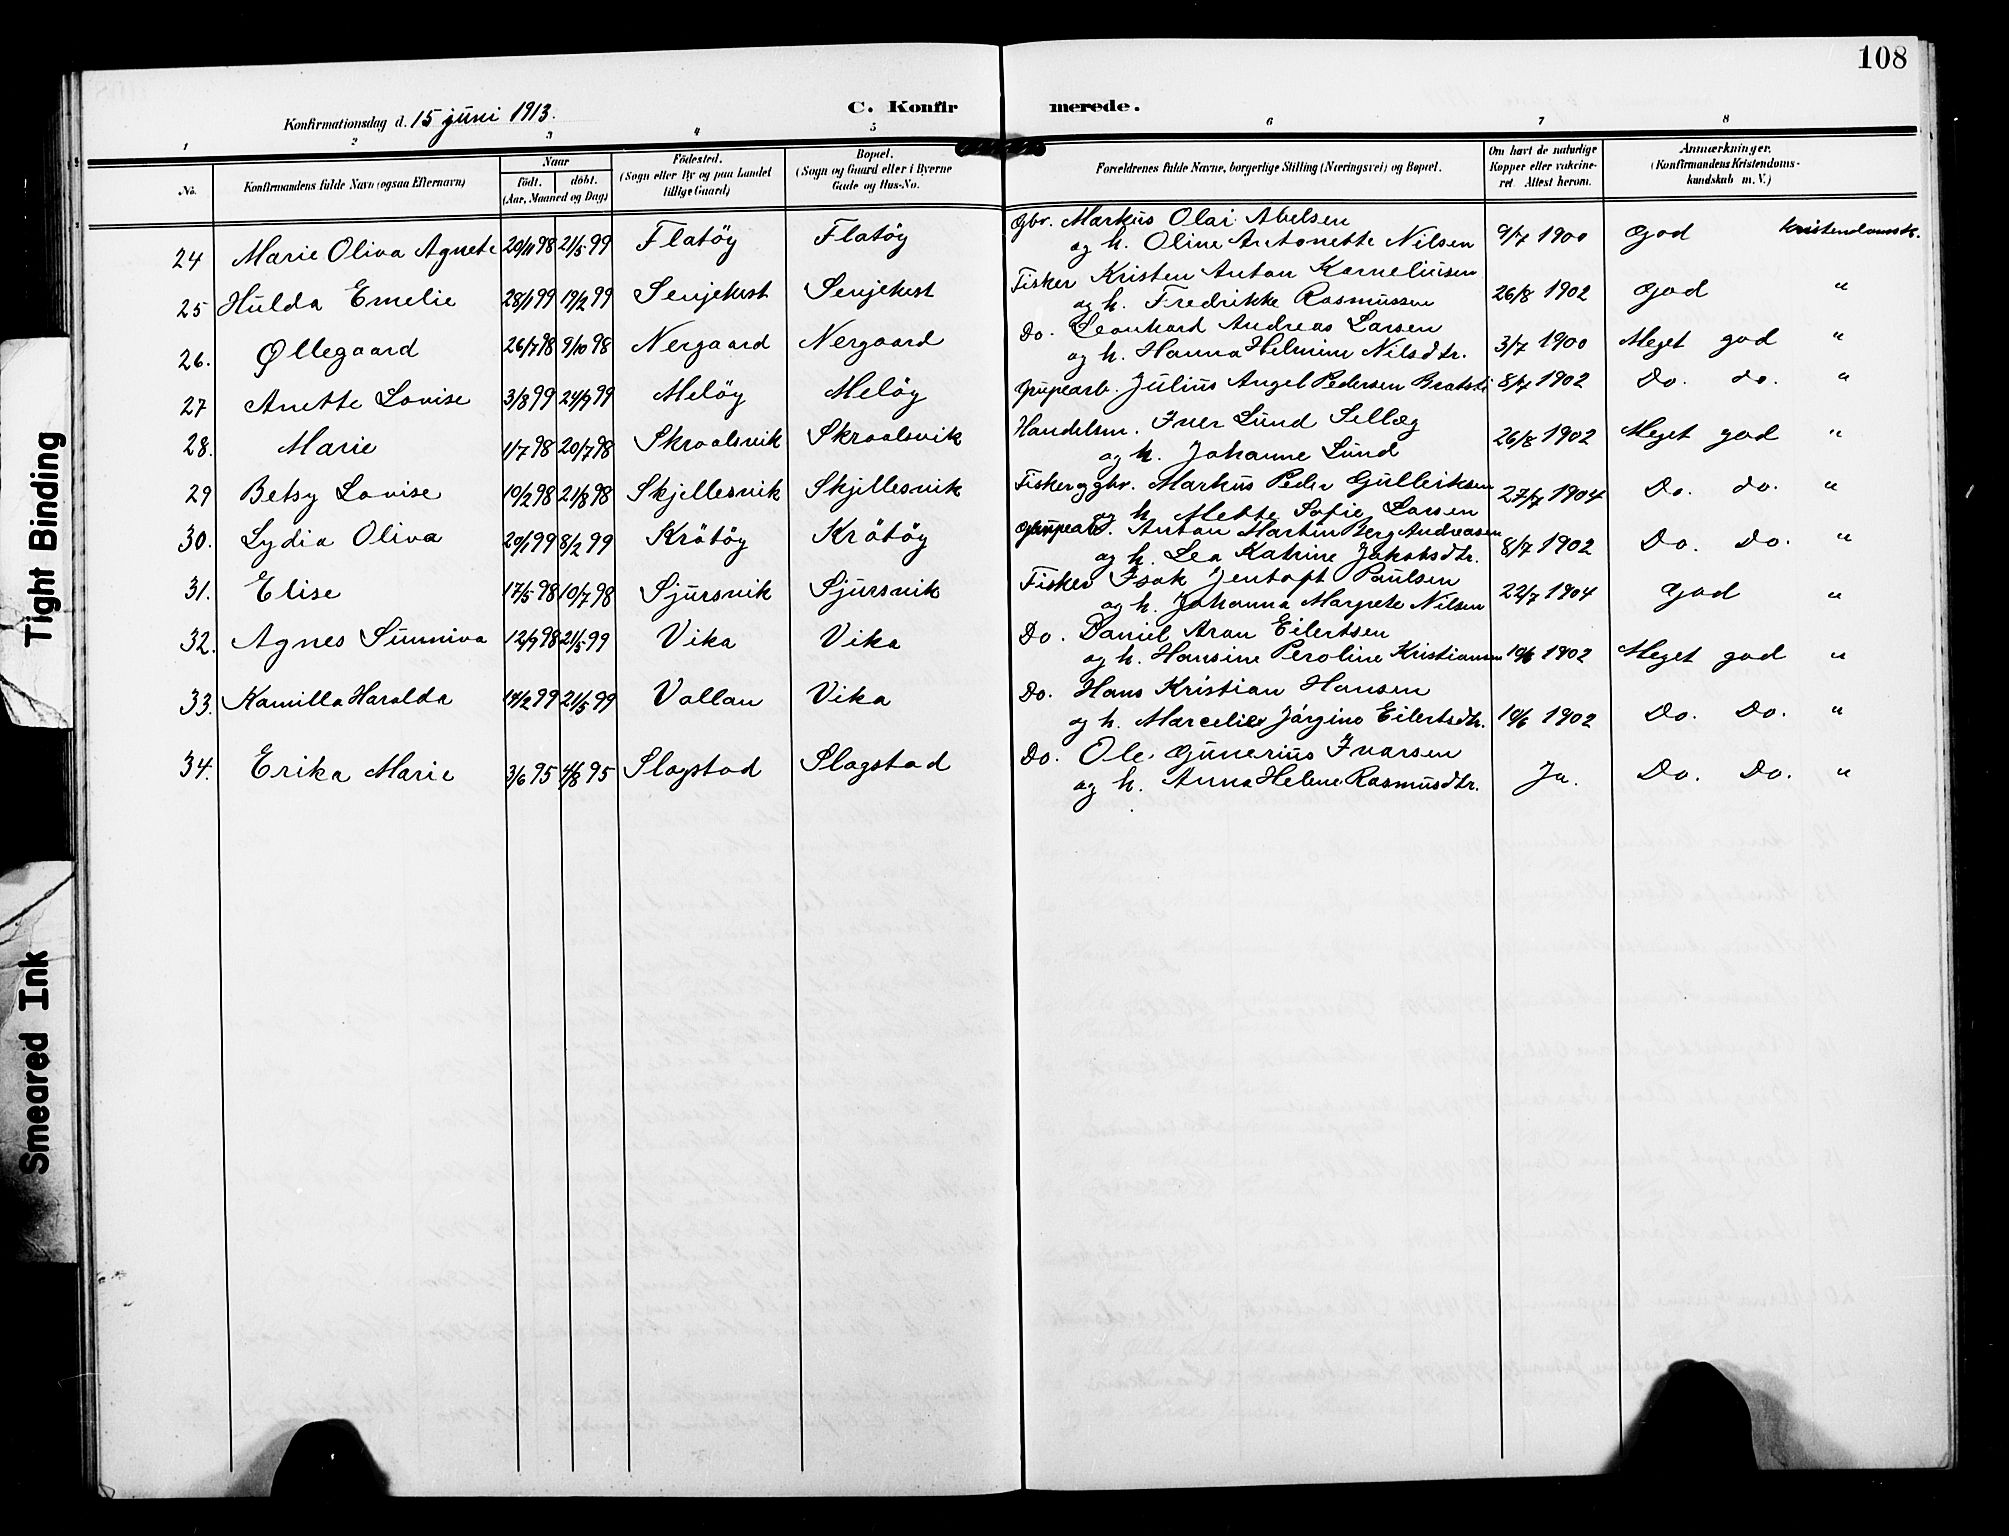 108
Konfirmationsdag d. 15 juni 1913.
C. Konfirmerede.
1 2 3 4 5 6 7 8
No.
Konfirmandens fulde Navn (ogsaa Efternavn)
Naar
født. døbt.
(Aar, Maaned og Dag)
Fødested.
(Sogn eller By og paa Landet
tillige Gaard)
Bopæl.
(Sogn og Gaard eller i Byerne
Gade og Hus-No.
Forældrenes fulde Navne, borgerlige Stilling (Næringsvei) og Bopæl.
Om havt de naturlige
Kopper eller vakcine-
ret. Attest herom.
Anmærkninger.
(Konfirmandens Kristendoms-
kundskab m. V.)
24 Marie Oliva Agnete 20/11 98 21/5 99 Flatöy Flatöy Gbr. Markus Olai Abelsen 9/7 1900 God Kristendomsk.
og h. Oline Antonette Nilsen
25 Hulda Emelie 28/1 99 19/2 99 Senjehest Senjehest Fisker Kristen Anton Korneliusen 26/8 1902 God "
og h. Fredrikke Rasmussen
26. Øllegaard 26/7 98 9/10 98 Nergaard Nergaard Do. Leonhard Andreas Larsen 3/7 1900 Meget god "
og h. Hanna Helmine Nilsdtr.
27 Anette Lovise 3/8 99 24/9 99 Melöy Melöy Grupearb. Julius Angel Pedersen 8/7 1902 Do. do. "
28. Marie 1/7 98 20/7 98 Skroalsvik Skroalsvik Handelsm. Iver Lund Sellæg 26/8 1902 Meget god "
og h. Johanne Lund
29 Betsy Lovise 10/2 98 21/8 98 Skjellesvik Skjellesvik Fisker og gbr. Markus Peder Gulleiksen 27/7 1904 Do. do. "
og h. Mette Sofie Larsen
30. Lydia Oliva 20/1 99 8/2 99 Krötöy Krötöy Grupearb. Anton Martin Berg Andreasen 8/7 1902 Do. Do. "
og h. Lea Katrine Jakobsdtr.
31. Elise 17/5 98 10/7 98 Sjursvik Sjursvik Fisker Isak Jentoft Paulsen 22/7 1904 God "
og h. Johanna Margrete Nilsen
32. Agnes Sunniva 12/9 98 21/5 99 Vika Vika Do. Daniel Aran Eilertsen
og h. Hansine Peroline Kristiansen 19/6 1902 Meget god "
33. Kamilla Haralda 14/2 99 21/5 99 Vollan Vika Do. Hans Kristian Hansen
og h. Marcelie Jörgine Eilertsdtr. 19/6 1902 Do. Do. "
34. Erika Marie 3/6 95 4/8 95 Slagstad Slagstad Do. Ole Gunerius Ivarsen
og h. Anna Helene Rasmusdtr. Ja. Do. Do. "
Tight Binding
Smeared Ink